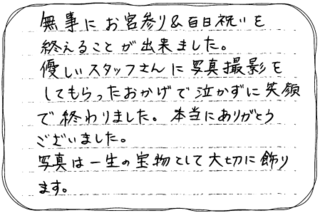 無事にお宮参り&百日祝いを
終えることが出来ました。
優しいスタッフさんに写真撮影を
してもらったおかげで泣かずに笑顔
で終わりました。本当にありがとう
ございました。
写真は一生の宝物として大切に飾り
ます。